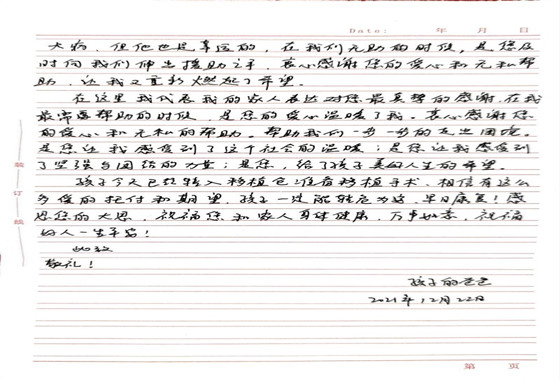 Date: 年 月 日
大病，但他也是幸运的，在我们无助的时候，是您及
时向我们伸出援助之手，衷心感谢您的爱心和无私帮
助，让我又重新燃起了希望。
在这里我代表我的家人表达对您最真挚的感谢，在我
最需要帮助的时候，是您的爱心温暖了我。衷心感谢您
的爱心和无私的帮助。帮助我们一步一步的走出困境。
是您让我感受到了这个社会的温暖；是您让我感受到
了坚强与团结的力量；是您，给了孩子美好人生的希望。
孩子今天已经转入移植仓准备移植手术，相信有这么
多爱的托付和期望，孩子一定能转危为安，早日康复！感
恩您的大恩，祝福您和家人身体健康，万事如意，祝福
好人一生平安！
此致
敬礼！
孩子的爸爸
2021年12月22日
装
订
线
第 页